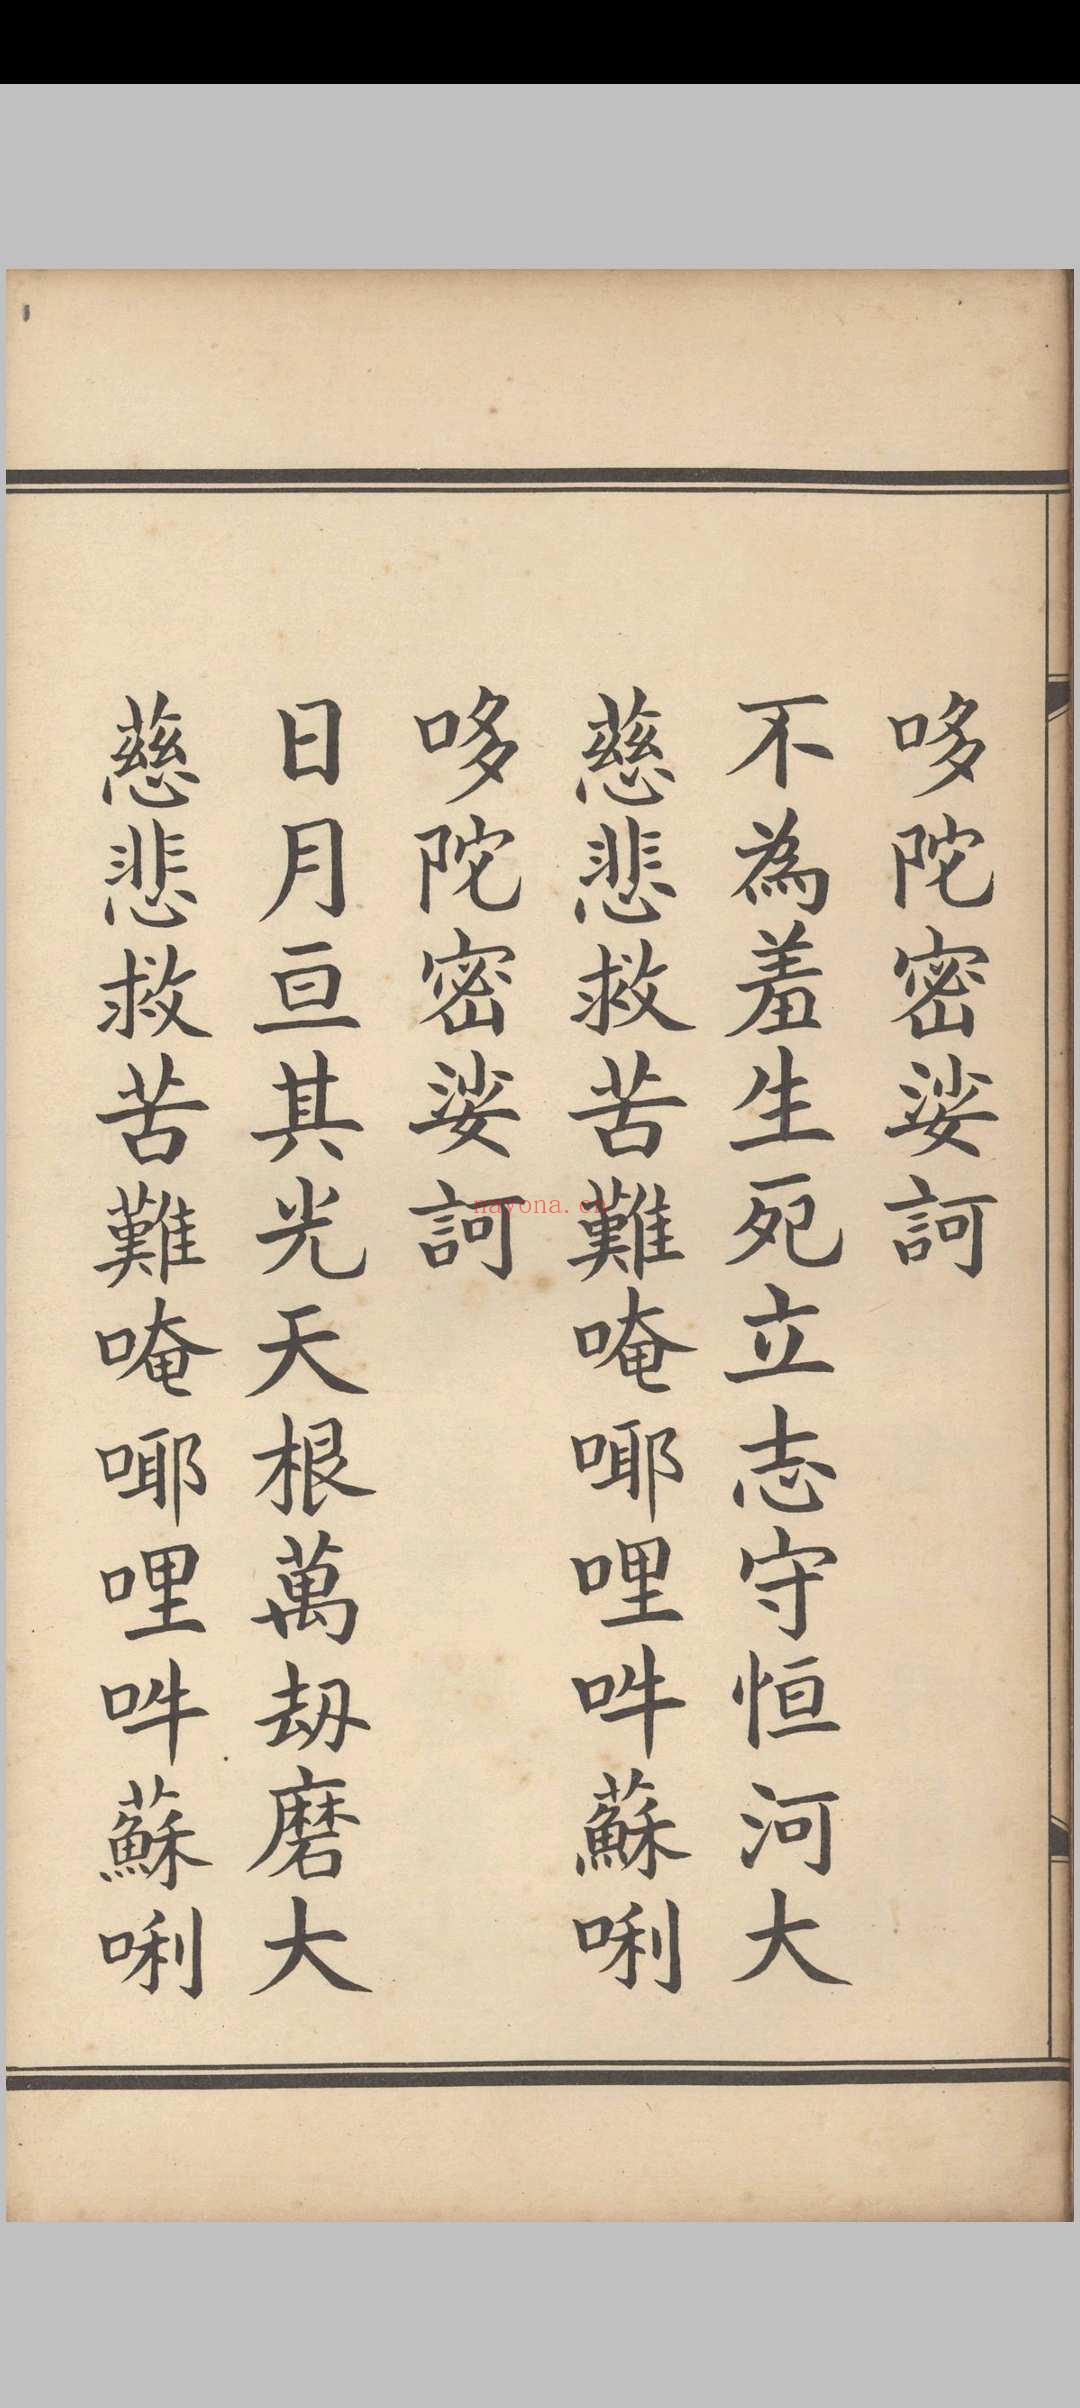 哆陀密娑訶
不為羞生死立志守恒河大
慈悲救苦難唵哪哩吽蘇唎
哆陀密娑訶
日月亘其光天根萬劫磨大
慈悲救苦難唵哪哩吽蘇唎
nayona.cn